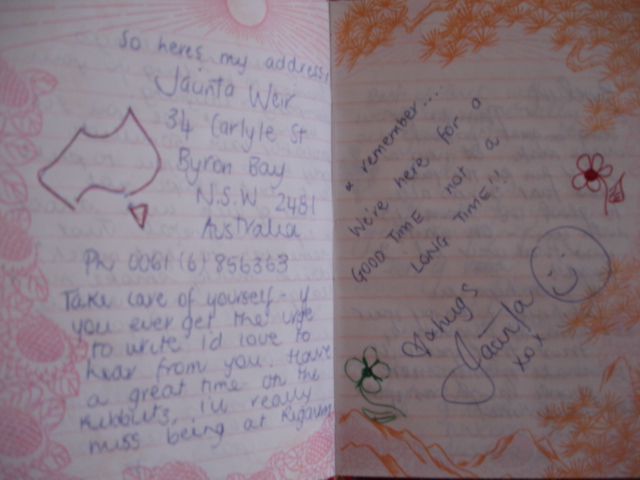 So heres my address:
Jaunta Weir
34 Carlyle St
Byron Bay
N.S.W 2481
Australia
Ph: 0061 (6) 856363
Take care of yourself - if
you ever get the urge
to write i'd love to
hear from you. Have
a great time on the
Kibbutz, i'll really
miss being at
* remember....
We're here for a
GOOD TIME not a
LONG TIME!!
hugs
Jaunta
xox